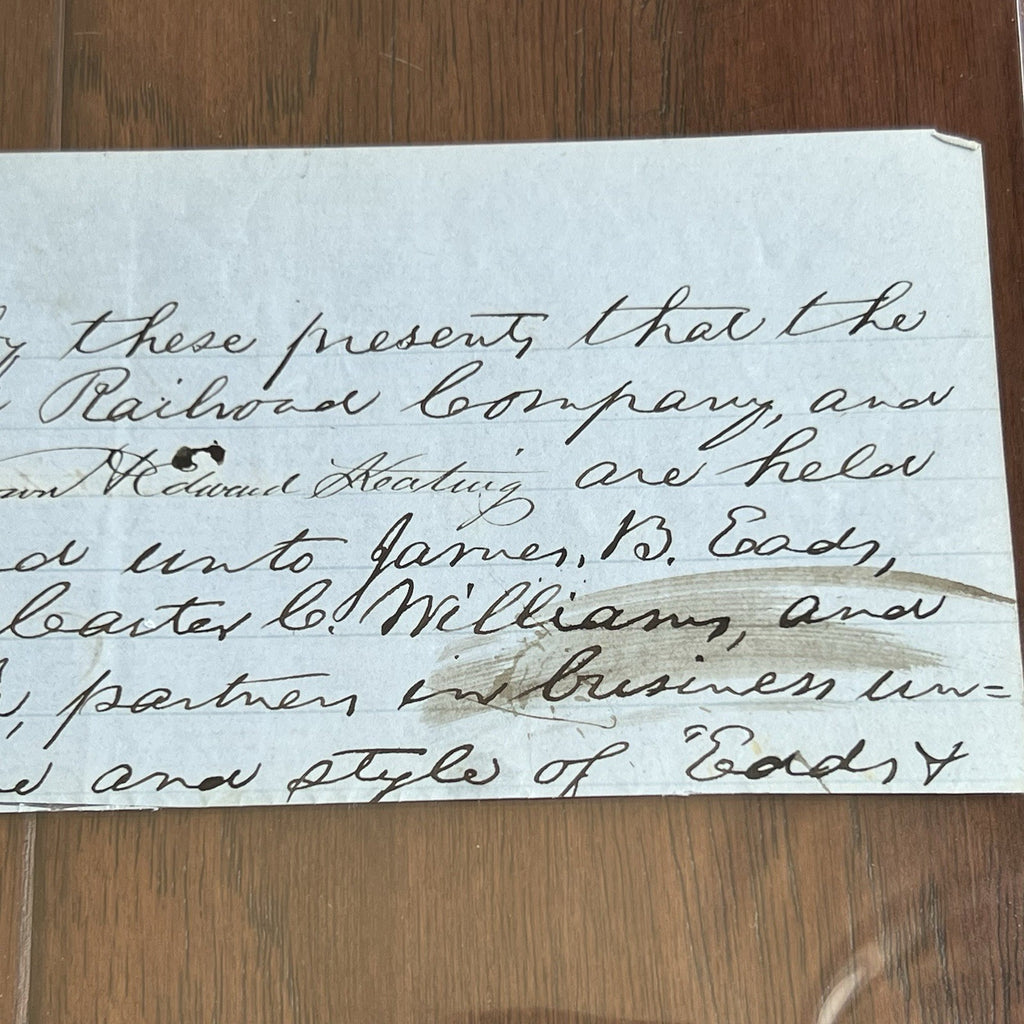 by these presents, that the
Railroad Company, and
& Edward Keating are held
unto James, B. Eads,
Carter C. Williams, and
partners in business un=
and style of "Eads &